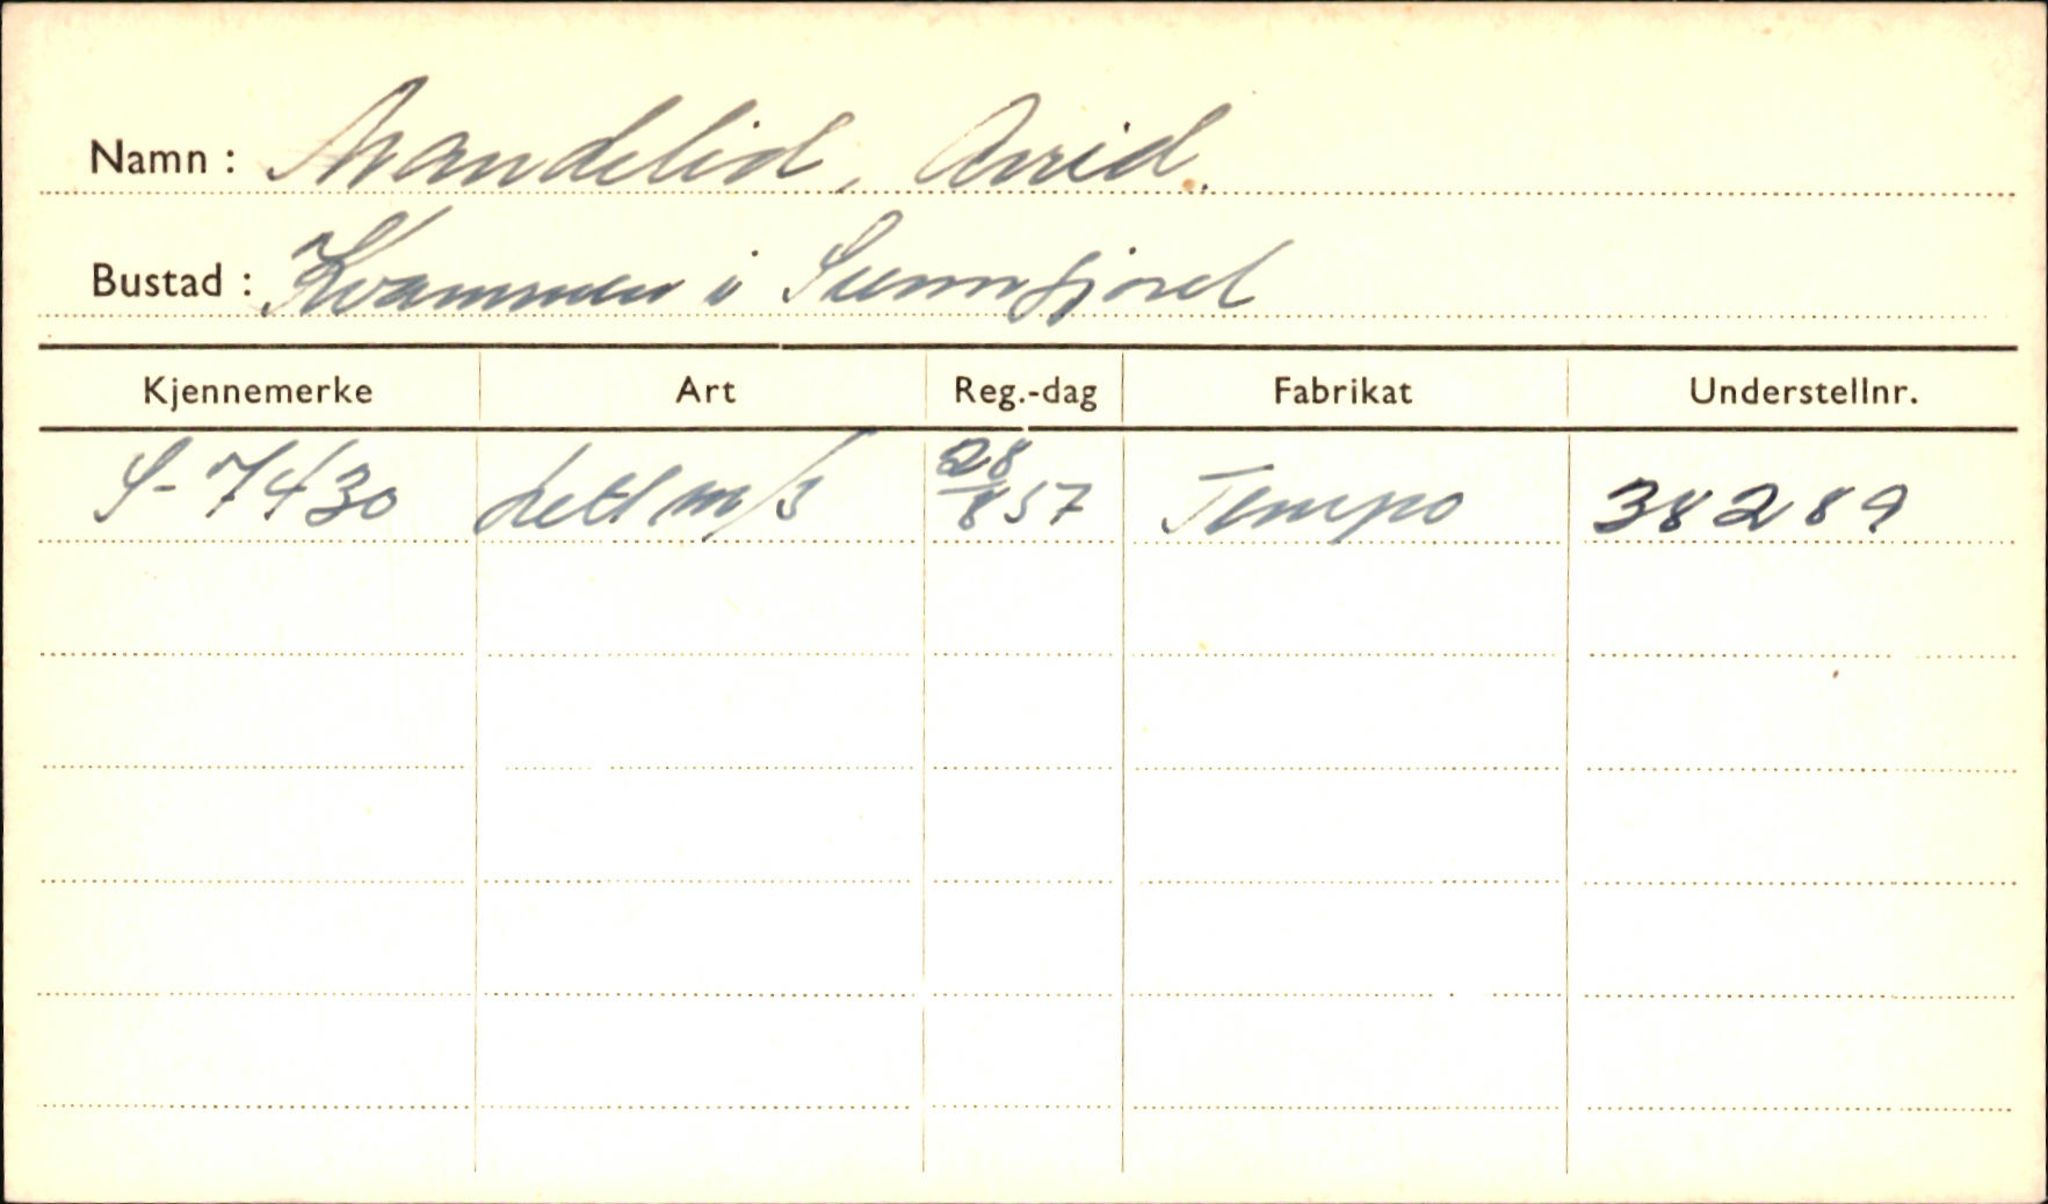 Namn: Mandelid, Arvid.
Bustad: Kvammen i Sunnfjord
Kjennemerke Art Reg.-dag Fabrikat Understellnr.
S-7430 lett m/s 28/8 57 Tempo 38289